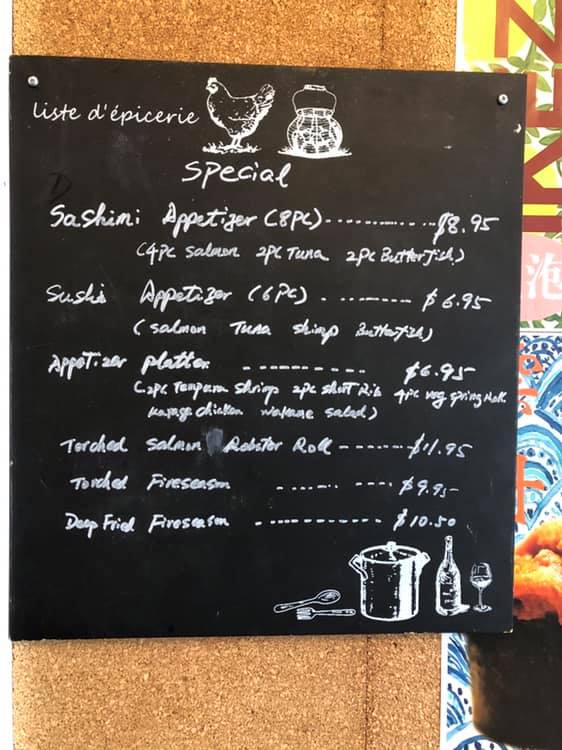 liste d'épicerie
Special
Sashimi Appetizer (8pc)------------$8.95
(4pc salmon 2pc Tuna 2pc Butterfish)
Sushi Appetizer (6pc) - --------- $6.95
(salmon Tuna shrimp Butterfish)
Appetizer platter ---------- $6.95
(2pc Tempura shrimp 2pc short Rib 4pc veg spring Roll
karage chicken wakame salad)
Torched Salmon Robster Roll -------$11.95
Torched Fireseason ------ ---- $9.95
Deep Fried Fireseason -------------- $10.50
泡